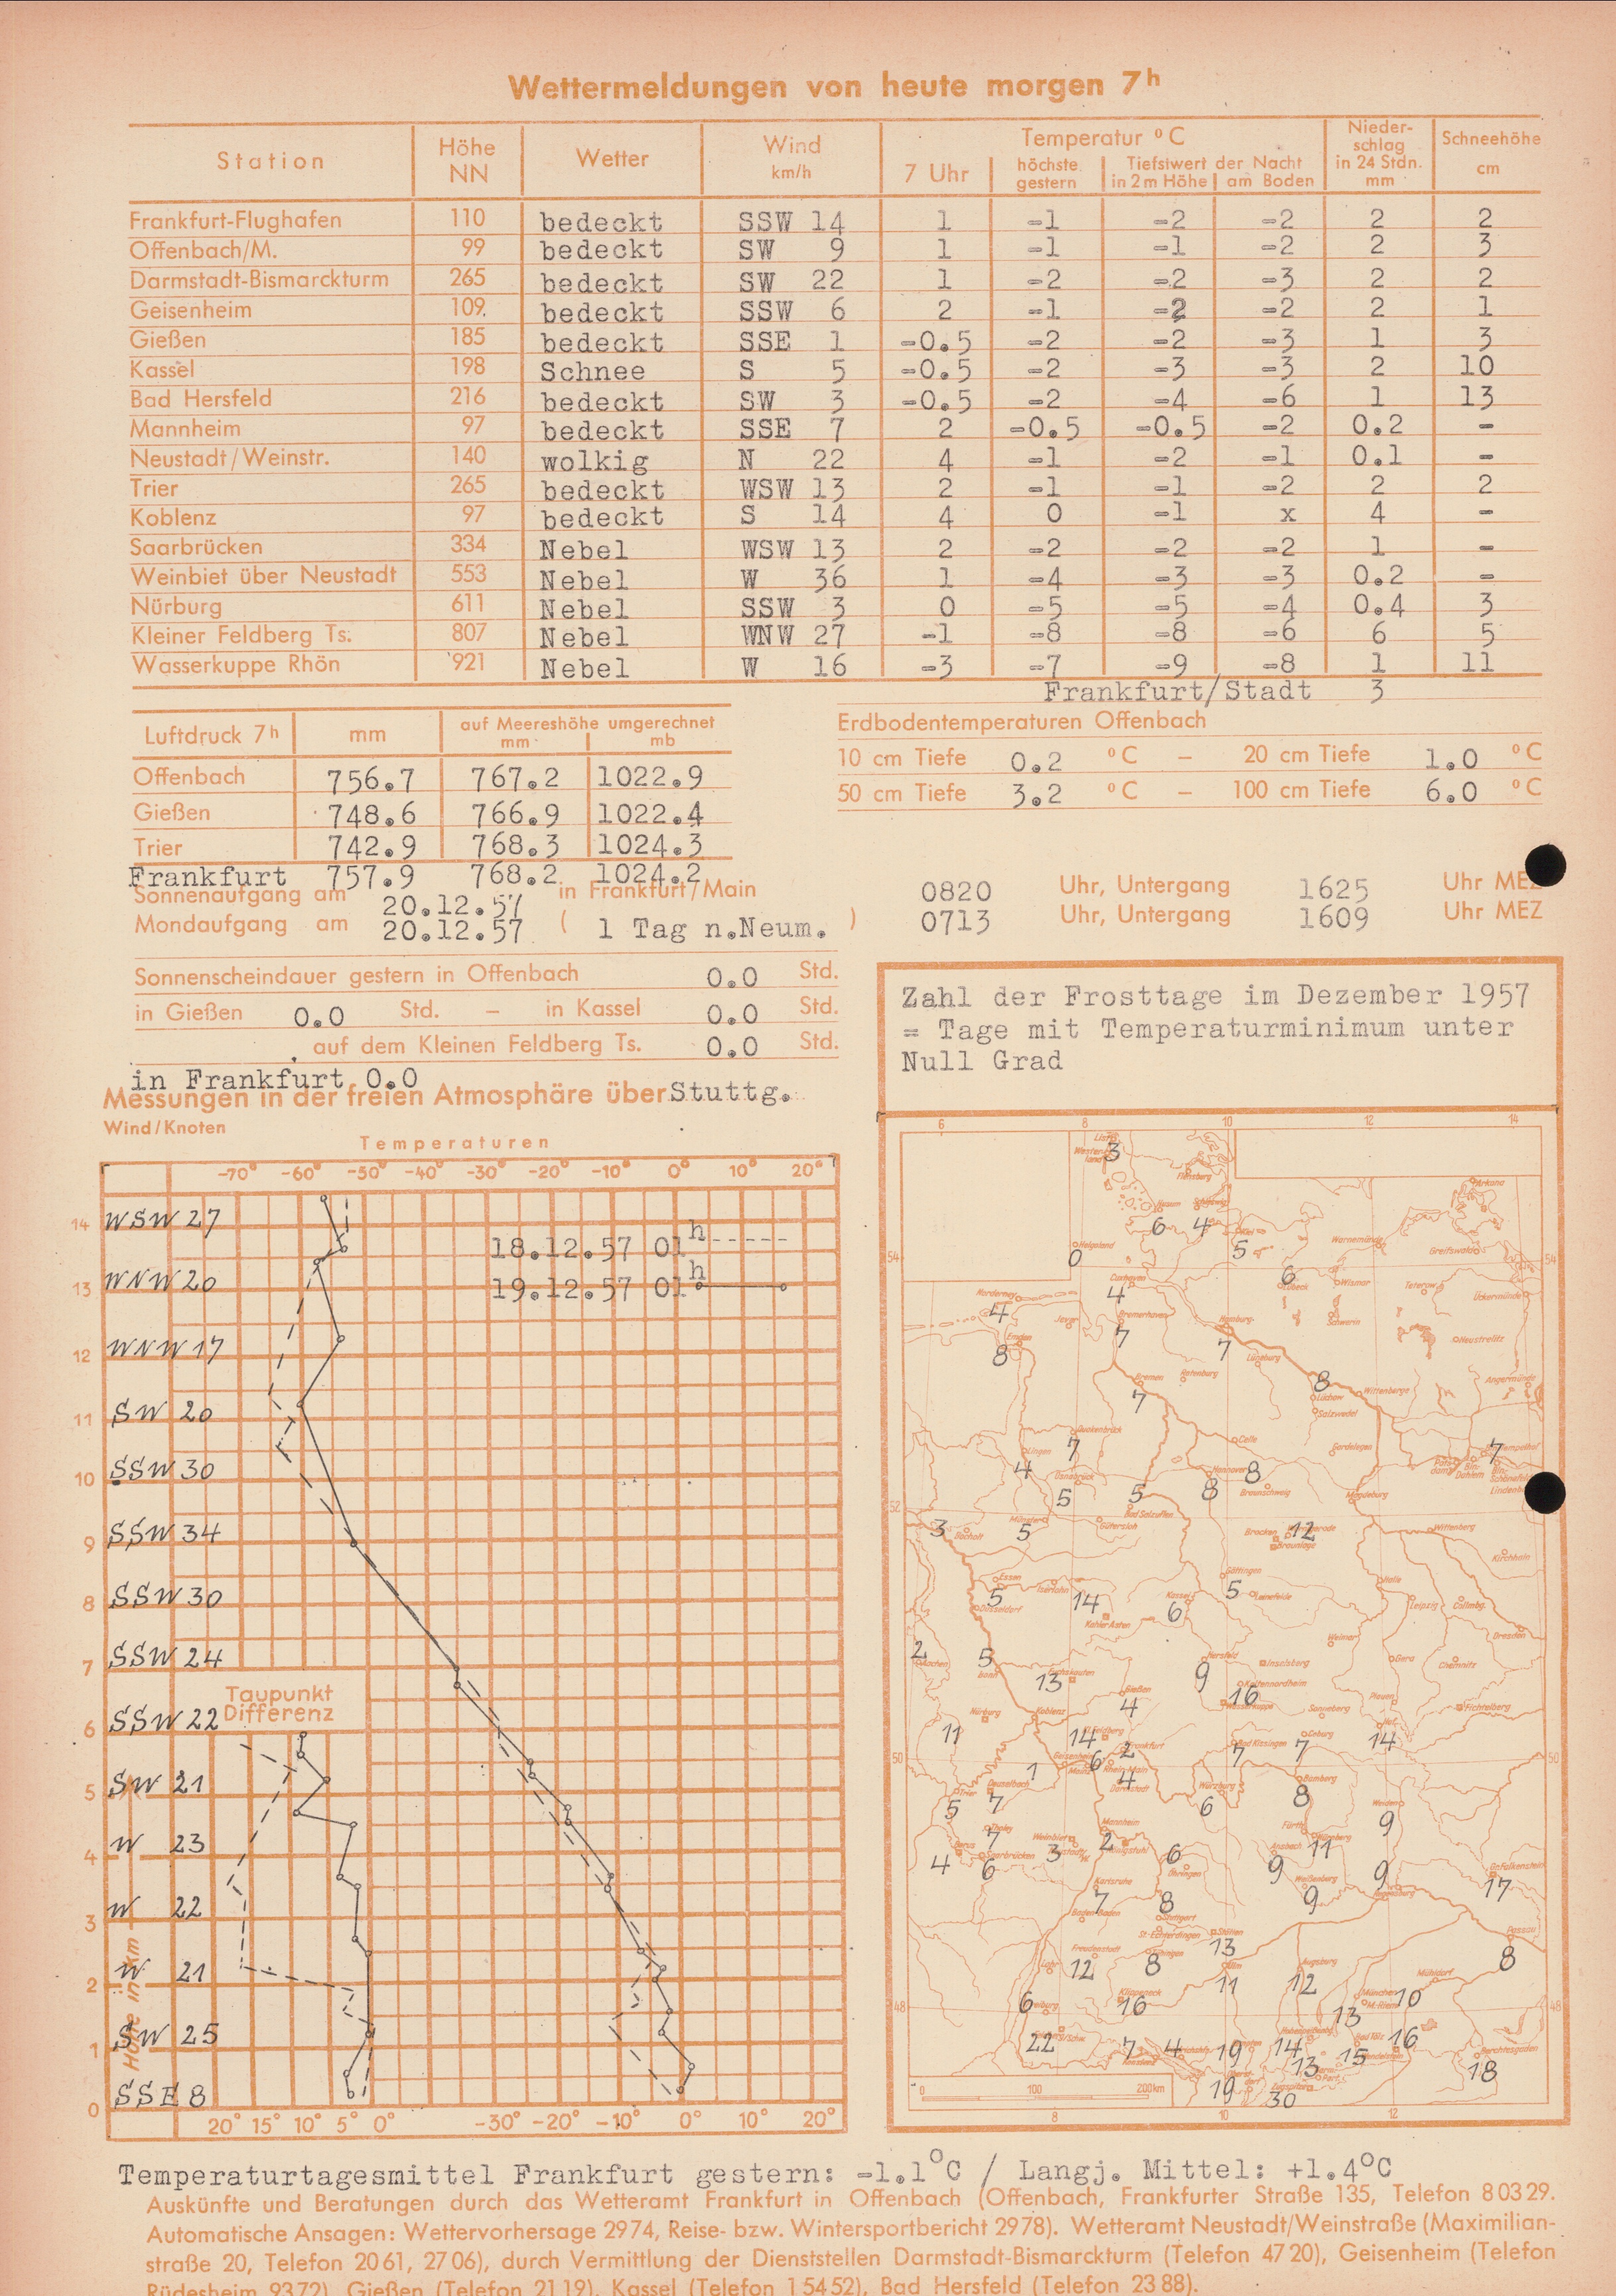 Wettermeldungen von heute morgen 7h
Station Höhe NN Wetter Wind km/h Temperatur °C Nieder-schlag in 24 Stdn. mm Schneehöhe cm
7 Uhr höchste gestern Tiefstwert der Nacht in 2 m Höhe am Boden
Frankfurt-Flughafen 110 bedeckt SSW 14 1 -1 -2 -2 2 2
Offenbach/M. 99 bedeckt SW 9 1 -1 -1 -2 2 3
Darmstadt-Bismarckturm 265 bedeckt SW 22 1 -2 -2 -3 2 2
Geisenheim 109 bedeckt SSW 6 2 -1 -2 -2 2 1
Gießen 185 bedeckt SSE 1 -0.5 -2 -2 -3 1 3
Kassel 198 Schnee S 5 -0.5 -2 -3 -3 2 10
Bad Hersfeld 216 bedeckt SW 3 -0.5 -2 -4 -6 1 13
Mannheim 97 bedeckt SSE 7 2 -0.5 -0.5 -2 0.2 -
Neustadt/Weinstr. 140 wolkig N 22 4 -1 -2 -1 0.1 -
Trier 265 bedeckt WSW 13 2 -1 -1 -2 2 2
Koblenz 97 bedeckt S 14 4 0 -1 x 4 -
Saarbrücken 334 Nebel WSW 13 2 -2 -2 -2 1 -
Weinbiet über Neustadt 553 Nebel W 36 1 -4 -3 -3 0.2 -
Nürburg 611 Nebel SSW 3 0 -5 -5 -4 0.4 3
Kleiner Feldberg Ts. 807 Nebel WNW 27 -1 -8 -8 -6 6 5
Wasserkuppe Rhön 921 Nebel W 16 -3 -7 -9 -8 1 11
Frankfurt/Stadt 3
Luftdruck 7h mm auf Meereshöhe umgerechnet mm mb
Offenbach 756.7 767.2 1022.9
Gießen 748.6 766.9 1022.4
Trier 742.9 768.3 1024.3
Frankfurt 757.9 768.2 1024.2
Erdbodentemperaturen Offenbach
10 cm Tiefe 0.2 °C – 20 cm Tiefe 1.0 °C
50 cm Tiefe 3.2 °C – 100 cm Tiefe 6.0 °C
Sonnenaufgang am 20.12.57 in Frankfurt/Main 0820 Uhr, Untergang 1625 Uhr MEZ
Mondaufgang am 20.12.57 ( 1 Tag n.Neum. ) 0713 Uhr, Untergang 1609 Uhr MEZ
Sonnenscheindauer gestern in Offenbach 0.0 Std.
in Gießen 0.0 Std. – in Kassel 0.0 Std.
auf dem Kleinen Feldberg Ts. 0.0 Std.
in Frankfurt 0.0
Messungen in der freien Atmosphäre über Stuttg.
Wind/Knoten
Temperaturen
-70° -60° -50° -40° -30° -20° -10° 0° 10° 20°
18.12.57 01h
19.12.57 01h
14 WSW 27
13 WNW 20
12 WNW 17
11 SW 20
10 SSW 30
9 SSW 34
8 SSW 30
7 SSW 24
Taupunkt
Differenz
6 SSW 22
5 SW 21
4 W 23
3 W 22
2 W 21
1 SW 25
0 SSE 8
Höhe in km
20° 15° 10° 5° 0° -30° -20° -10° 0° 10° 20°
Zahl der Frosttage im Dezember 1957
= Tage mit Temperaturminimum unter
Null Grad
6 8 10 12 14
3
6 4 5
0
Helgoland
6
4
4
7
8
7
8
7
7
7
4
8
5 5 8
3
5
12
5
14
5
6
2
5
13
9
16
4
11
14
14
7 7
6 2
1
4
5 7
6
8
9
7
2
11
3
6
4 6
9
9
7 8
9
17
13
8
8
12
11 12
10
6 16
13
22
7 4 19 14
16
13 15
18
19 30
0 100 200km
8 10 12
54 52 50 48
Temperaturtagesmittel Frankfurt gestern: -1.1°C / Langj. Mittel: +1.4°C
Auskünfte und Beratungen durch das Wetteramt Frankfurt in Offenbach (Offenbach, Frankfurter Straße 135, Telefon 8 03 29.
Automatische Ansagen: Wettervorhersage 29 74, Reise- bzw. Wintersportbericht 29 78). Wetteramt Neustadt/Weinstraße (Maximilian-
straße 20, Telefon 20 61, 27 06), durch Vermittlung der Dienststellen Darmstadt-Bismarckturm (Telefon 47 20), Geisenheim (Telefon
Rüdesheim 93 72), Gießen (Telefon 21 19), Kassel (Telefon 1 54 52), Bad Hersfeld (Telefon 23 88).